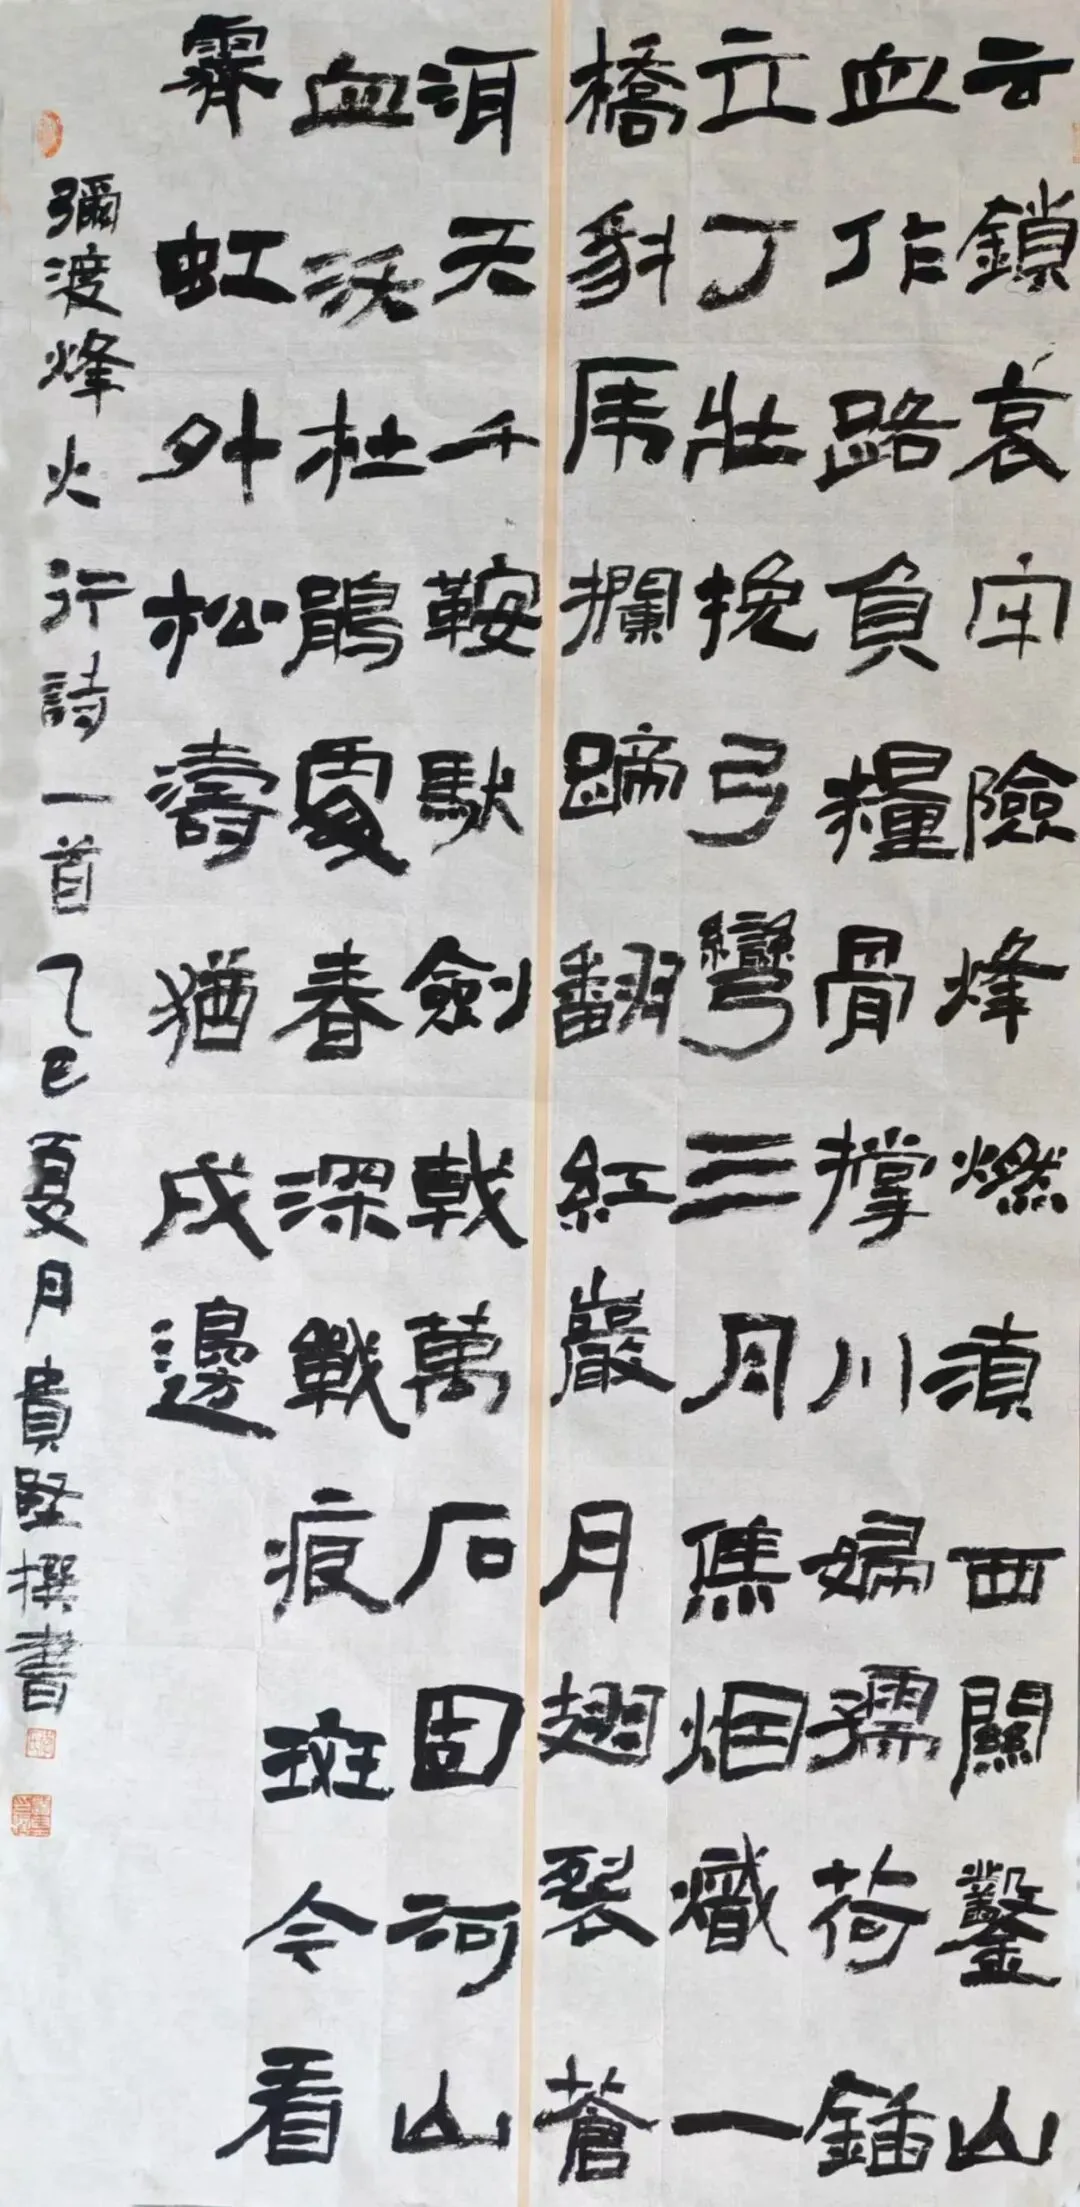 云鎖哀牢險烽燃滇西關鑿山
血作路負糧骨撑川婦孺荷鍤
立丁壯挽弓彎三月焦烟熾一
橋豺虎攔蹄翻紅巖月翅裂蒼
洱天千鞍馱劍戟萬石固河山
血沃杜鵑夏春深戰痕斑今看
霽虹外松濤猶戍邊
彌渡烽火行詩一首乙巳夏月貴堅撰書